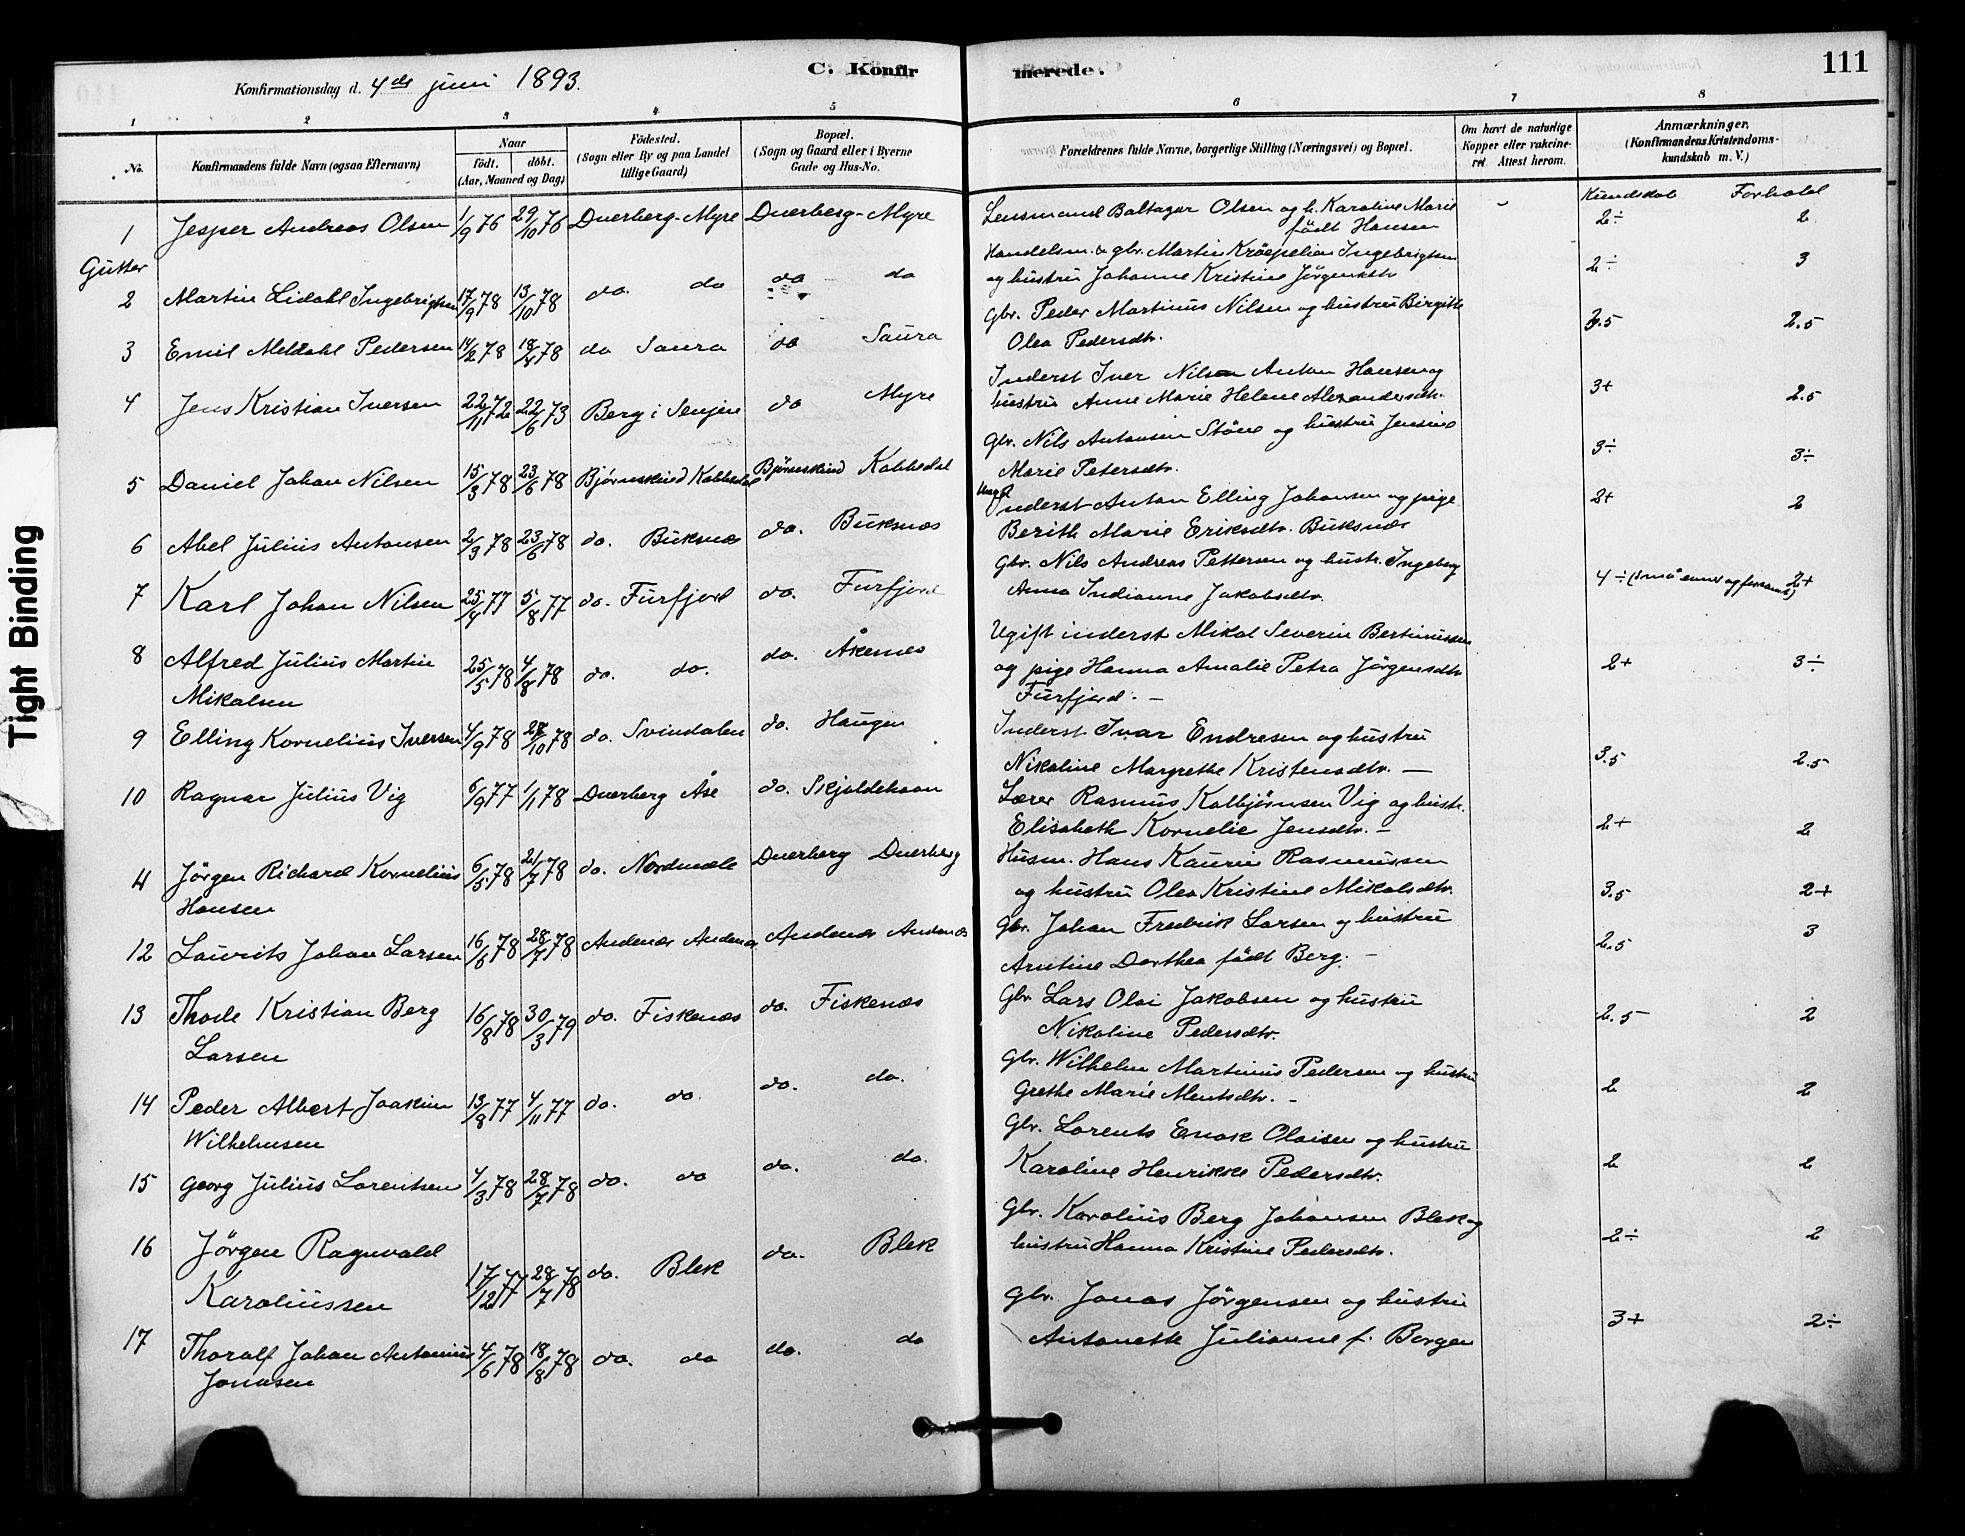 111
Konfirmationsdag d. 4de juni 1893.
C. Konfirmerede.
1 2 3 4 5 6 7 8
No.
Konfirmandens fulde Navn (ogsaa Efternavn)
Naar
födt. döbt.
(Aar, Maaned og Dag)
Födested.
(Sogn eller By og paa Landet
tillige Gaard)
Bopæl.
(Sogn og Gaard eller i Byerne
Gade og Hus-No.
Forældrenes fulde Navne, borgerlige Stilling (Næringsvei) og Bopæl.
Om havt de naturlige
Kopper eller vakcine-
ret Attest herom.
Anmærkninger.
(Konfirmandens Kristendoms-
kundskab m. V.)
Kundskab Forhold
Gutter
1 Jesper Andreas Olsen 1/9 76 29/10 76 Dverberg-Myre Dverberg-Myre Lensmand Baltazar Olsen og h. Karoline Marie 2÷ 2
födt Hansen
2 Martin Lidahl Ingebrigtsen 17/9 78 13/10 78 do. do do do Handelsm. & gbr. Martin Krøepelien Ingebrigtsen 2÷ 3
og hustru Johanne Kristine Jørgensdtr
3 Emil Meldahl Pedersen 14/2 78 18/4 78 do Saura do Saura Gbr. Peder Martinus Nilsen og hustru Birgitte 2.5 2.5
Olea Pedersdtr.
4 Jens Kristian Iversen 22/11 72 22/6 73 Berg i Senjen do Myre Inderst Iver Nilsen Anton Hansen og 3+ 2.5
hustru Anne Marie Helene Alexandersdtr.
5 Daniel Johan Nilsen 15/3 78 23/6 78 Bjørnskind Kobbedal Bjørnskind Kobbedal Gbr. Nils Antonsen Støve og hustru Jensine 3÷ 3÷
Marie Petersdtr.
6 Abel Julius Antonsen 2/3 78 23/6 78 do. Buksnæs do. Buksnæs Ungk. Inderst Anton Elling Johansen og pige 2+ 2
Berith Marie Eriksdtr. Buksnæs
7 Karl Johan Nilsen 25/4 77 5/8 77 do. Furfjord do. Furfjord Gbr. Nils Andreas Pettersen og hustr. Ingeborg 4÷ (små evner og forsømt) 2+
Anna Indianne Jakobsdtr.
8 Alfred Julius Martin 25/5 78 4/8 78 do. do. do. Åkenes Ugift inderst Mikal Severin Bertinussen 2+ 3÷
Mikalsen og pige Hanna Amalie Petra Jørgensdtr
Furfjord. —
9 Elling Kornelius Iversen 4/9 78 27/10 78 do. Svindalen do. Haugen Inderst Ivar Endresen og hustru 3.5 2.5
Nikoline Margrethe Kristensdtr. —
10 Ragnar Julius Vig 6/9 77 1/1 78 Dverberg Åse do. Skjoldehavn Lærer Rasmus Kolbjørnsen Vig og hustr. 2+ 2
Elisabeth Kornelie Jensdtr. —
11 Jørgen Richard Kornelius 6/5 78 21/7 78 do. Nordmæle Dverberg Dverberg Husm. Hans Kaurin Rasmussen 3.5 2+
Hansen og hustru Olea Kristine Mikalsdtr.
12 Laurits Johan Larsen 16/6 78 28/7 78 Andenæs Andenæs Andenæs Andenæs Gbr. Johan Fredrik Larsen og hustru 2.5 3
Arntine Dorthea födt Berg. —
13 Thode Kristian Berg 16/8 78 30/3 79 do. Fiskenæs do. Fiskenæs Gbr. Lars Olai Jakobsen og hustru 2.5 2
Larsen Nikoline Pedersdtr.
14 Peder Albert Joakim 13/8 77 4/11 77 do. do do. do. Gbr. Wilhelm Martinus Pedersen og hustru 2 2
Wilhelmsen Grethe Marie Mentsdtr. —
15 Georg Julius Lorentsen 4/3 78 28/7 78 do. do do. do. Gbr. Lorents Enok Olaisen og hustru 2 2
Karoline Henrikke Pedersdtr.
16 Jörgen Ragnvald 17/12 77 28/7 78 do. Blek do. Blek Gbr. Karolius Berg Johansen Blek og 2÷ 2
Karoliussen hustru Hanna Kristine Pedersdtr.
17 Thoralf Johan Antonius 4/6 78 18/8 78 do. do do. do Gbr. Jonas Jörgensen og hustru 3+ 2÷
Jonasen Antonette Julianne f. Borgen
Tight Binding